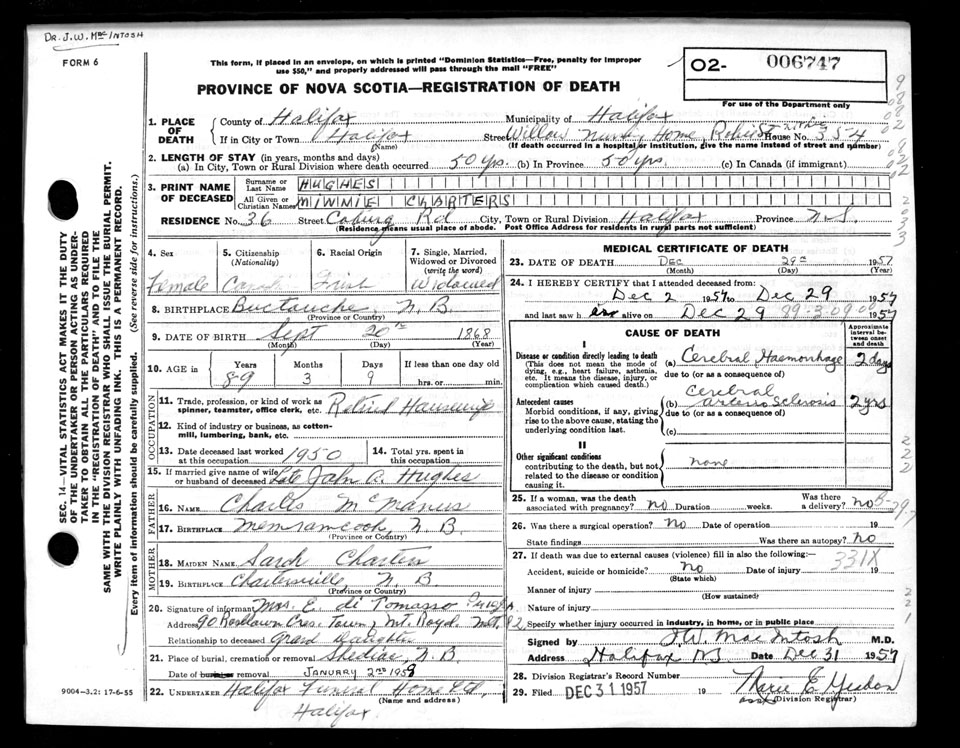 DR. J.W. MacINTOSH
FORM 6
This form, if placed in an envelope, on which is printed "Dominion Statistics—Free, penalty for improper
use $50," and properly addressed will pass through the mail "FREE"
PROVINCE OF NOVA SCOTIA—REGISTRATION OF DEATH
O2- 006747
For use of the Department only
1. PLACE OF DEATH
County of Halifax Municipality of Halifax
If in City or Town Halifax Street Willow Nursing Home, Robie St House No. 554
(Name) (If death occurred in a hospital or institution, give the name instead of street and number)
2. LENGTH OF STAY (in years, months and days)
(a) In City, Town or Rural Division where death occurred 50 yrs. (b) In Province 50 yrs. (c) In Canada (if immigrant)
3. PRINT NAME OF DECEASED
Surname or Last Name HUGHES
All Given or Christian Names MINNIE CHARTERS
RESIDENCE No. 36 Street Coburg Rd City, Town or Rural Division Halifax Province N.S.
(Residence means usual place of abode. Post Office Address for residents in rural parts not sufficient)
4. Sex
Female
5. Citizenship
(Nationality)
6. Racial Origin
Irish
7. Single, Married, Widowed or Divorced
(write the word)
Widowed
8. BIRTHPLACE Buctouche N.B.
(Province or Country)
9. DATE OF BIRTH Sept 20th 1868
(Month) (Day) (Year)
10. AGE in
Years Months Days If less than one day old
89 3 9 hrs. or min.
OCCUPATION
11. Trade, profession, or kind of work as
spinner, teamster, office clerk, etc. Retired Housewife
12. Kind of industry or business, as cotten-
mill, lumbering, bank, etc.
13. Date deceased last worked at this occupation 1950
14. Total yrs. spent in this occupation
15. If married give name of wife
or husband of deceased Late John A. Hughes
FATHER
16. NAME Charles McManus
17. BIRTHPLACE Memramcook, N.B.
(Province or Country)
MOTHER
18. MAIDEN NAME Sarah Charters
19. BIRTHPLACE Chartersville, N.B.
(Province or Country)
20. Signature of informant Mrs. E. di Tomasso
Address 90 Roselawn Cres. Town, Mt. Royal
Relationship to deceased Grand daughter
21. Place of burial, cremation or removal Shediac, N.B.
Date of burial or removal JANUARY 2nd 1958
22. UNDERTAKER Halifax Funeral Home Ltd.
(Name and address)
Halifax
MEDICAL CERTIFICATE OF DEATH
23. DATE OF DEATH Dec 29th 1957
(Month) (Day) (Year)
24. I HEREBY CERTIFY that I attended deceased from:
Dec 2 1957 to Dec 29 1957
and last saw her alive on Dec 29 1957
CAUSE OF DEATH
Approximate interval between onset and death
I
Disease or condition directly leading to death
(This does not mean the mode of
dying, e.g., heart failure, asthenia,
etc. It means the disease, injury, or
complication which caused death.)
(a) Cerebral Haemorrhage 2 days
due to (or as a consequence of)
Antecedent causes
Morbid conditions, if any, giving
rise to the above cause, stating the
underlying condition last.
(b) Cerebral arterio Sclerosis 2 yrs
due to (or as a consequence of)
(c)
II
Other significant conditions
contributing to the death, but not
related to the disease or condition
causing it.
none
25. If a woman, was the death
associated with pregnancy? no Duration weeks. Was there a delivery? no
26. Was there a surgical operation? No Date of operation 19
State findings Was there an autopsy? No
27. If death was due to external causes (violence) fill in also the following:—
331X
Accident, suicide or homicide? No Date of injury 19
(State which)
Manner of injury
(How sustained)
Nature of injury
Specify whether injury occurred in industry, in home, or in public place
Signed by J.W. MacIntosh M.D.
Address Halifax, NS Date Dec 31 1957
28. Division Registrar's Record Number
29. Filed DEC 31 1957 19
(Division Registrar)
SEC. 14—VITAL STATISTICS ACT MAKES IT THE DUTY
OF THE UNDERTAKER OR PERSON ACTING AS UNDER-
TAKER TO OBTAIN ALL THE PARTICULARS REQUIRED
IN THE "REGISTRATION OF DEATH" AND TO FILE THE
SAME WITH THE DIVISION REGISTRAR WHO SHALL ISSUE THE BURIAL PERMIT.
WRITE PLAINLY WITH UNFADING INK. THIS IS A PERMANENT RECORD.
Every item of information should be carefully supplied. (See reverse side for instructions.)
9004—3.2: 17-6-55